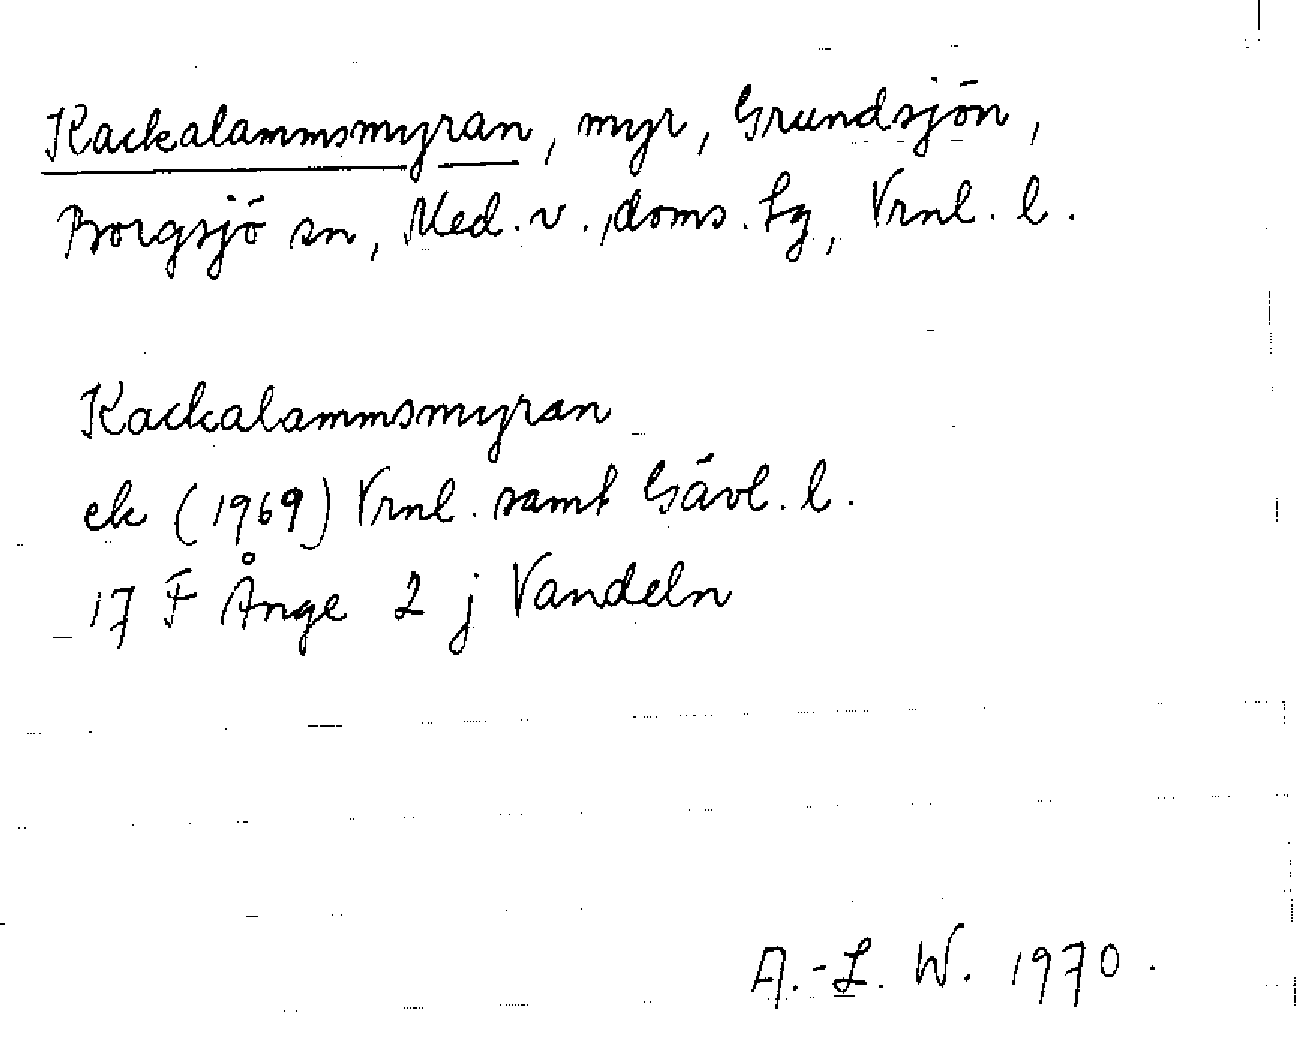 Kackalammsmyran, myr, Grundsjön,
Borgsjö sn, Med. v. doms. tg, Vrnl. l.
Kackalammsmyran
ek (1969) Vrnl. samt Gävl. l.
17 F Ånge 2 j Vandeln
A.-L. W. 1970.